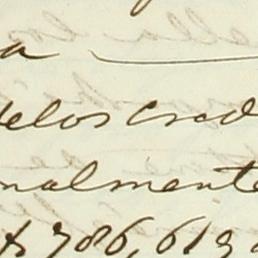 a
delos cred
nalmente
786,619